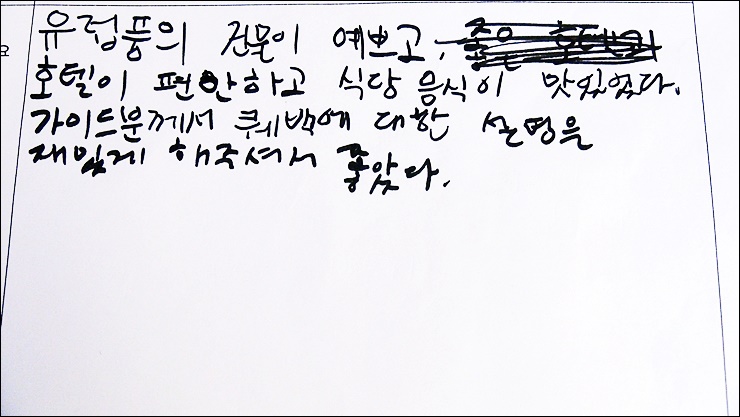 유럽풍의 건물이 예쁘고,
호텔이 편안하고 식당 음식이 맛있었다.
가이드분께서 퀘백에 대한 설명을
재밌게 해주셔서 좋았다.